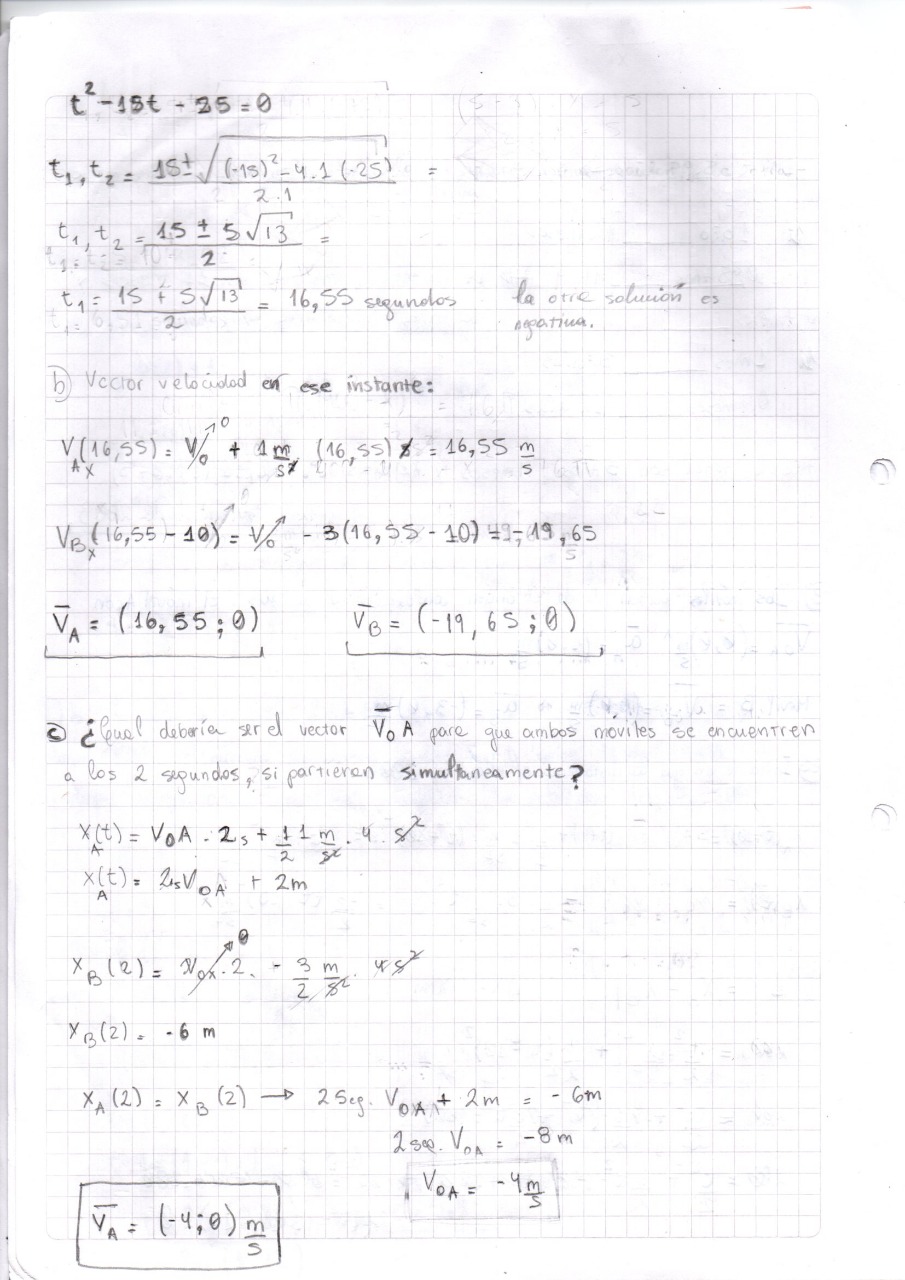 t² - 15t - 25 = 0
t₁, t₂ = 15 ± √((-15)² - 4.1 (-25)) / 2.1 =
t₁, t₂ = 15 ± 5√13 / 2 =
t₁ = 15 + 5√13 / 2 = 16,55 segundos la otra solución es
negativa.
b) Vector velocidad en ese instante:
V_Ax (16,55) = V₀ ↗ 0 + 1 m/s² (16,55) s = 16,55 m/s
V_Bx (16,55 - 10) = V₀ ↗ 0 - 3 (16,55 - 10) = - 19,65
V̄_A = (16,55 ; 0) V̄_B = (-19,65 ; 0)
c) ¿Cual debería ser el vector V̄₀A para que ambos móviles se encuentren
a los 2 segundos, si partieran simultaneamente?
X_A(t) = V₀A . 2s + 1/2 1 m/s² . 4 s²
X_A(t) = 2s V₀A + 2m
X_B (2) = V₀x . 2 ↗ 0 - 3/2 m/s² . 4 s²
X_B (2) = - 6 m
X_A (2) = X_B (2) → 2 seg. V₀A + 2m = - 6m
2 seg. V₀A = - 8 m
V₀A = - 4 m/s
V̄_A = (-4 ; 0) m/s